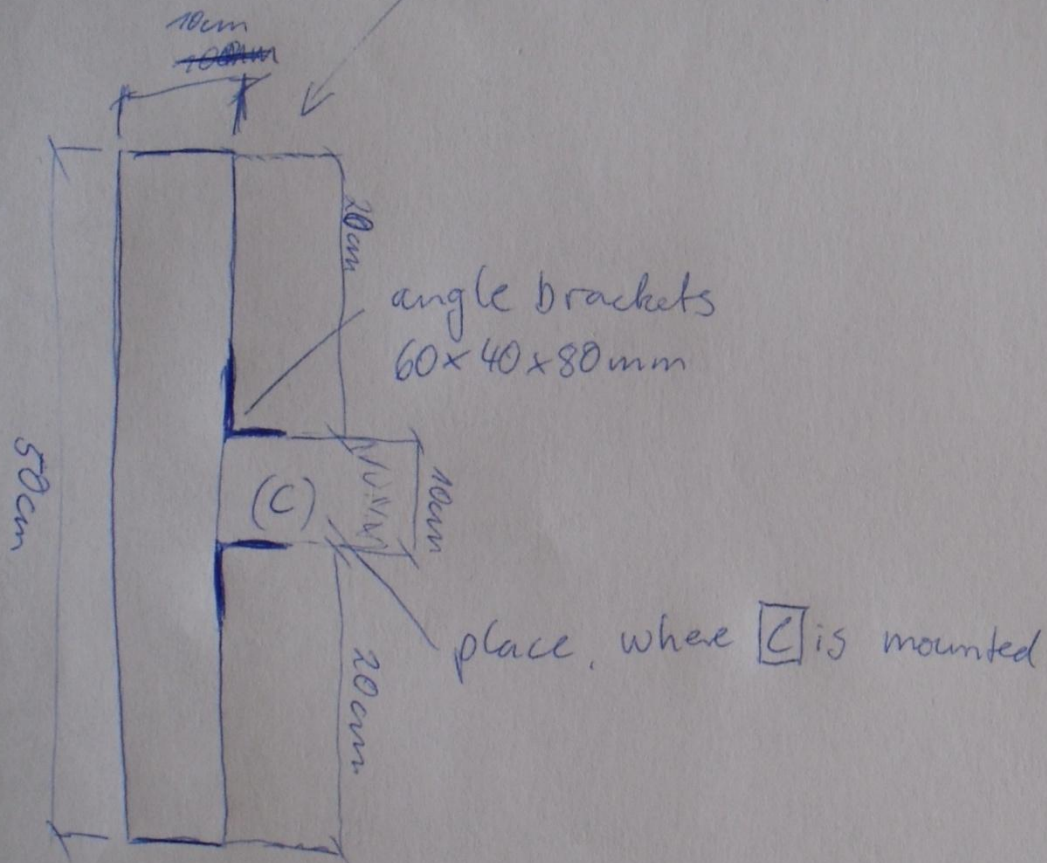 10cm
20cm
angle brackets
60x40x80mm
50cm
(C)
10cm
place, where C is mounted
20cm